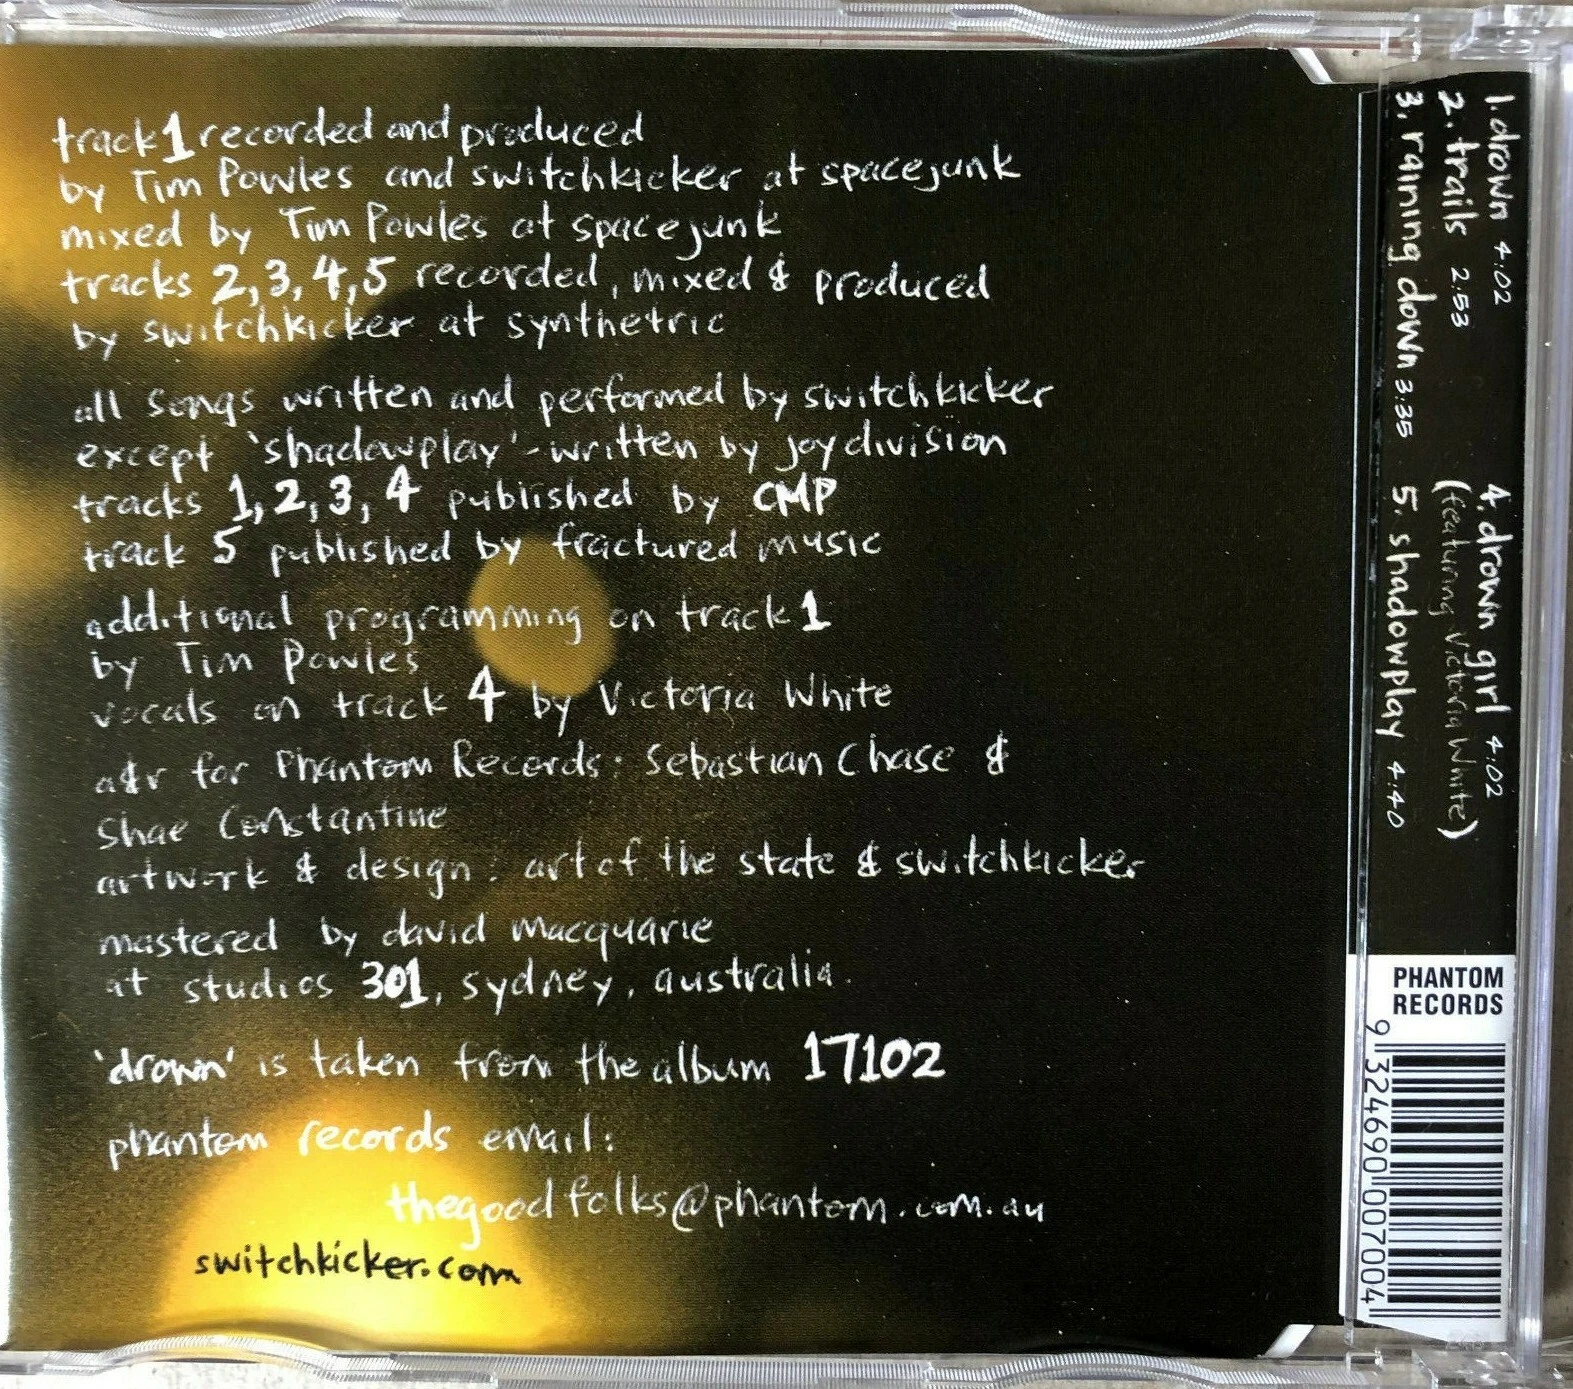 track 1 recorded and produced
by Tim Powles and switchkicker at spacejunk
mixed by Tim Powles at spacejunk
tracks 2, 3, 4, 5 recorded, mixed & produced
by switchkicker at synthetric
all songs written and performed by switchkicker
except 'shadowplay' - written by joy division
tracks 1, 2, 3, 4 published by CMP
track 5 published by fractured music
additional programming on track 1
by Tim Powles
vocals on track 4 by Victoria White
a&r for Phantom Records: Sebastian Chase &
Shae Constantine
artwork & design: art of the state & switchkicker
mastered by david macquarie
at studios 301, sydney, australia.
'drown' is taken from the album 17102
phantom records email:
thegoodfolks@phantom.com.au
switchkicker.com
1. drown 4:02
2. trails 2:53
3. raining down 3:35
4. drown girl 4:02
(featuring Victoria White)
5. shadowplay 4:40
PHANTOM
RECORDS
9 324690 007004